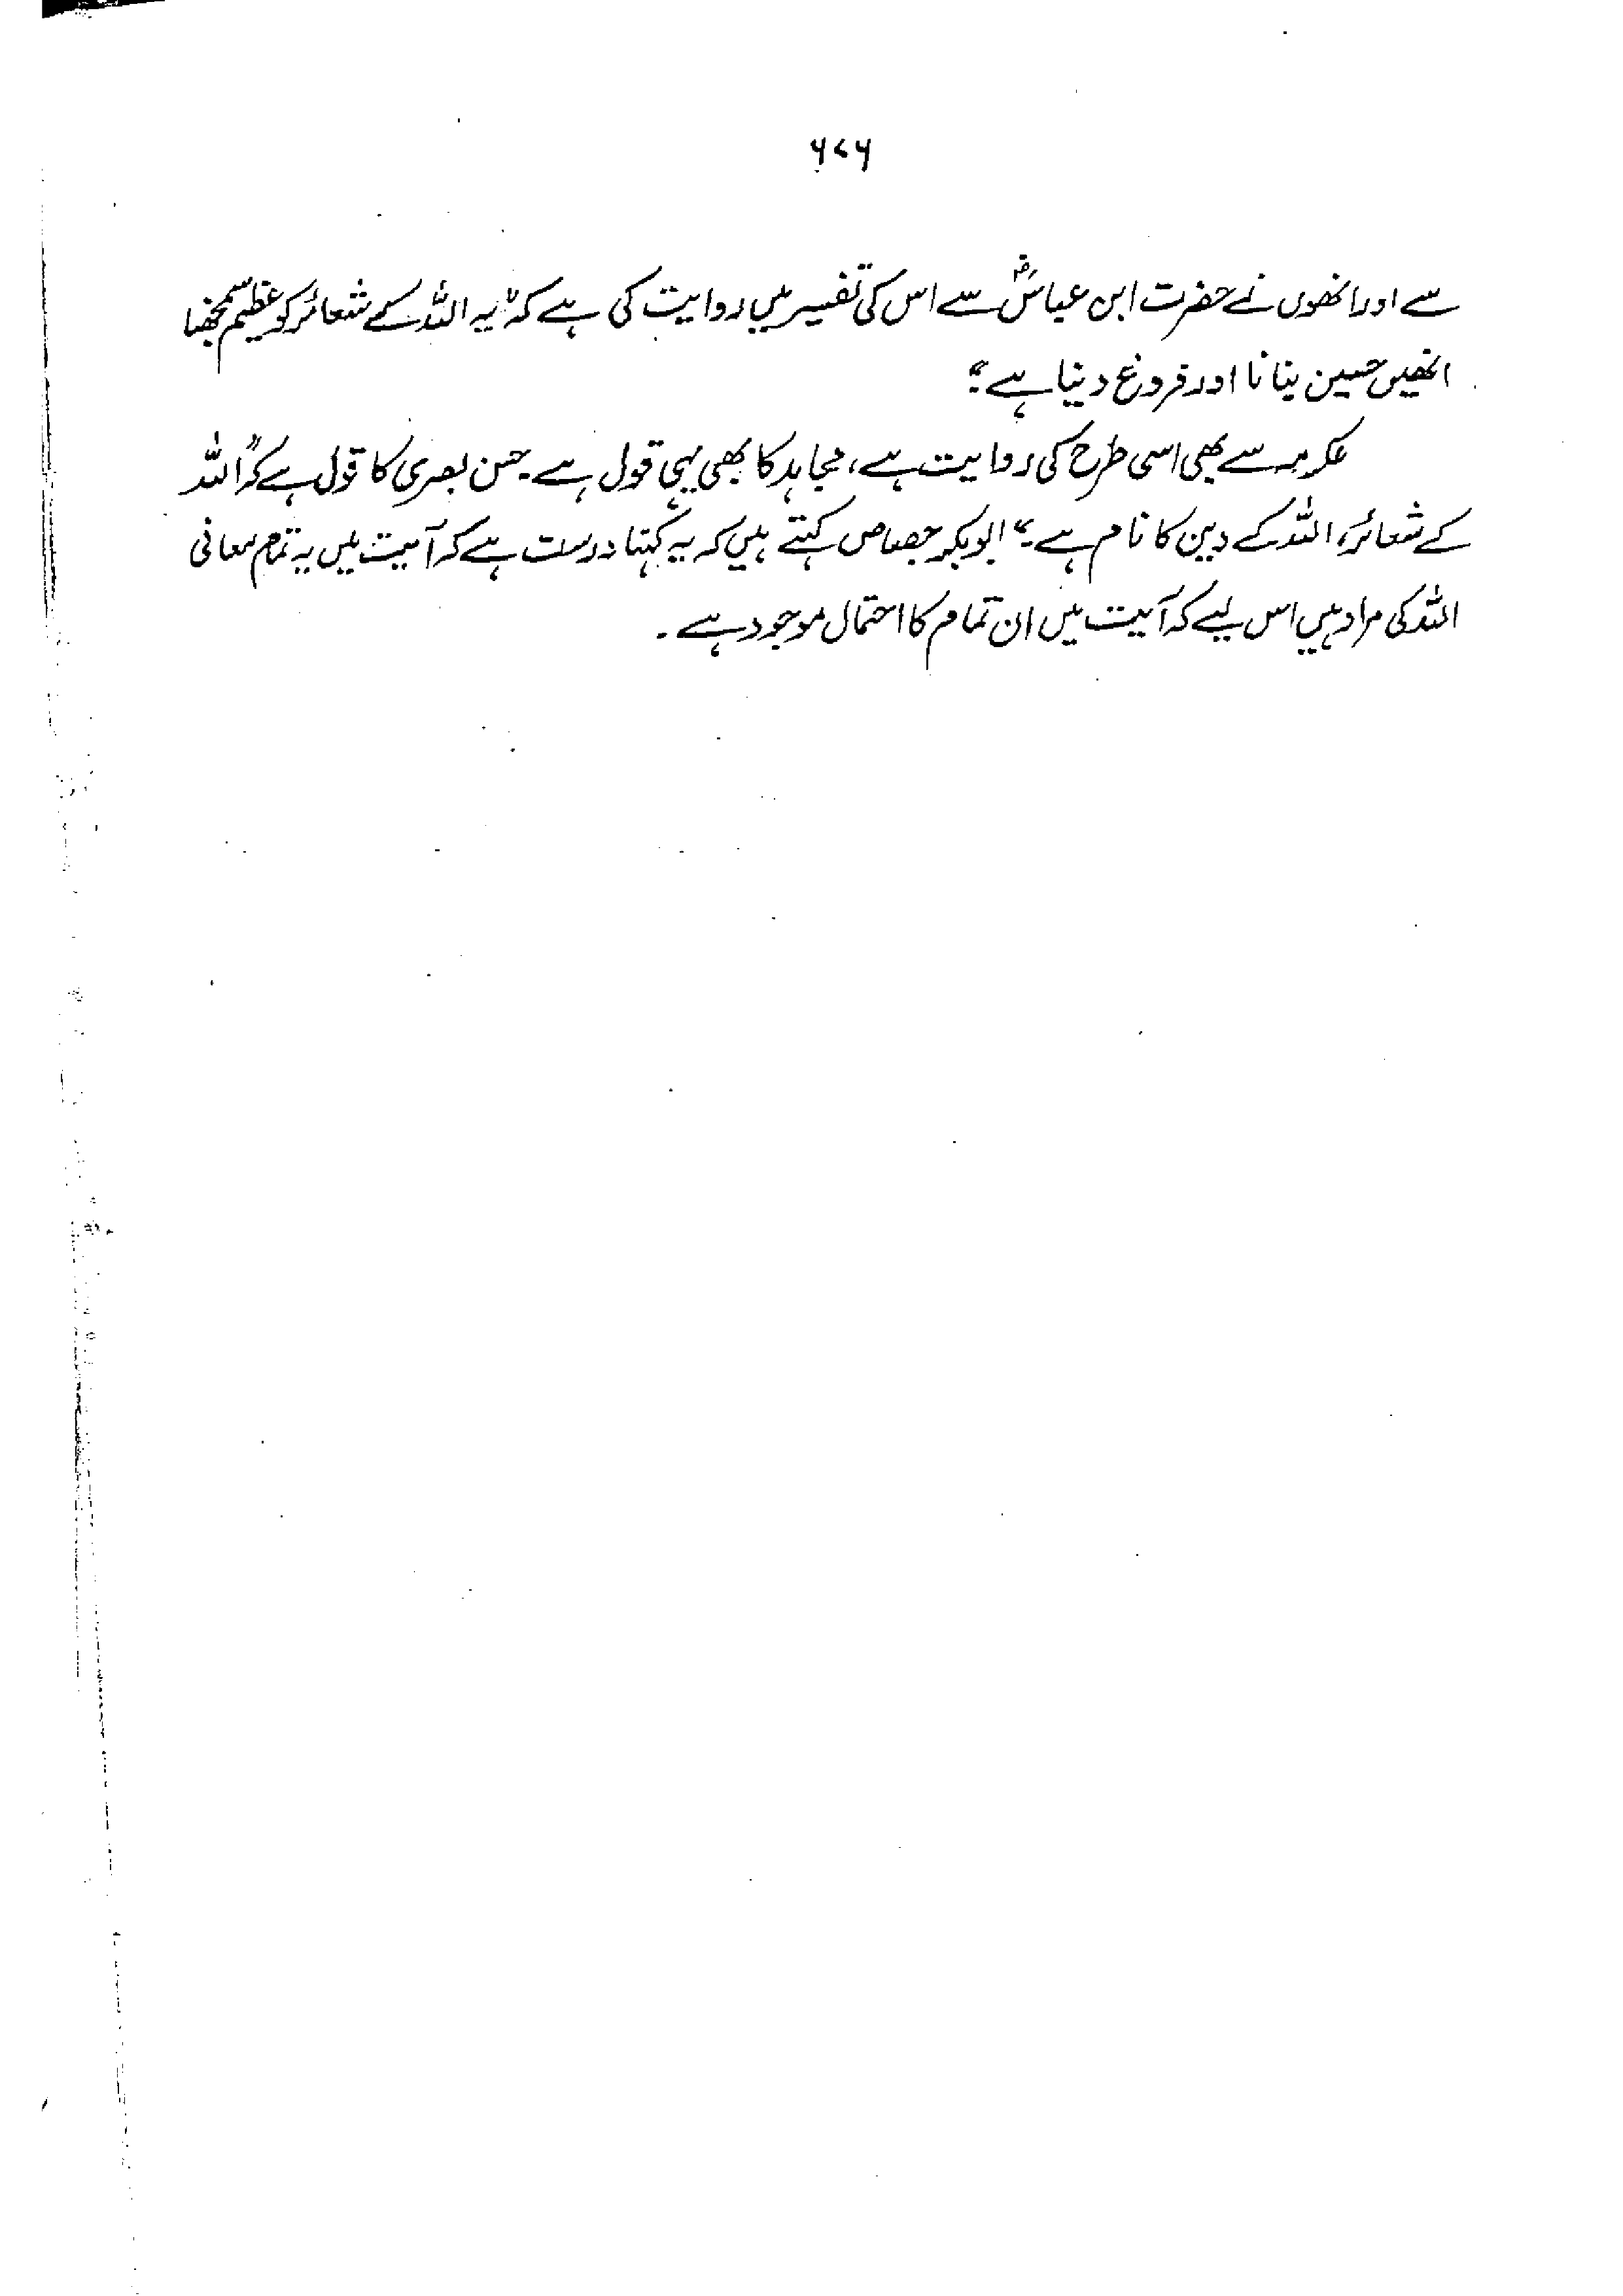 ۶۷۶
سے اور انھوں نے حضرت ابن عباسؓ سے اس کی تفسیر میں روایت کی ہے کہ "یہ اللہ کے شعائر کو عظیم سمجھنا
انھیں حسین بنانا اور فروغ دینا ہے"
عکرمہ سے بھی اسی طرح کی روایت ہے، مجاہد کا بھی یہی قول ہے۔ حسن بصری کا قول ہے کہ "اللہ
کے شعائر، اللہ کے دین کا نام ہے۔" ابوبکر جصاص کہتے ہیں کہ یہ کہنا درست ہے کہ آیت میں یہ تمام معانی
اللہ کی مراد ہیں اس لیے کہ آیت میں ان تمام کا احتمال موجود ہے۔